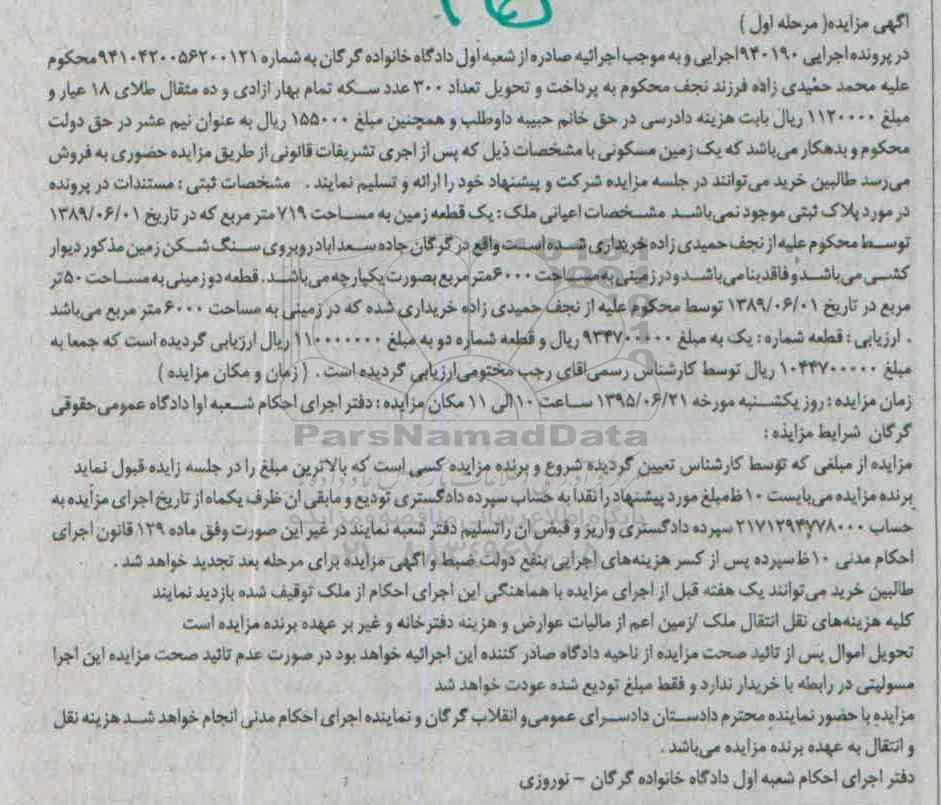 آگهی مزایده( مرحله اول )
در پرونده اجرایی ۹۴۰۱۹۰اجرایی و به موجب اجرائیه صادره از شعبه اول دادگاه خانواده گرگان به شماره ۹۴۱۰۴۲۰۰۵۶۲۰۰۱۲۱محکوم
علیه محمد حمیدی زاده فرزند نجف محکوم به پرداخت و تحویل تعداد ۳۰۰ عدد سکه تمام بهار ازادی و ده مثقال طلای ۱۸ عیار و
مبلغ ۱۱۲۰۰۰۰ ریال بابت هزینه دادرسی در حق خانم حبیبه داوطلب و همچنین مبلغ ۱۵۵۰۰۰ ریال به عنوان نیم عشر در حق دولت
محکوم و بدهکار می‌باشد که یک زمین مسکونی با مشخصات ذیل که پس از اجری تشریفات قانونی از طریق مزایده حضوری به فروش
می‌رسد طالبین خرید می‌توانند در جلسه مزایده شرکت و پیشنهاد خود را ارائه و تسلیم نمایند . مشخصات ثبتی : مستندات در پرونده
در مورد پلاک ثبتی موجود نمی‌باشد مشخصات اعیانی ملک : یک قطعه زمین به مساحت ۷۱۹ متر مربع که در تاریخ ۱۳۸۹/۰۶/۰۱
توسط محکوم علیه از نجف حمیدی زاده خریداری شده است واقع در گرگان جاده سعد اباد روبروی سنگ شکن زمین مذکور دیوار
کشی می‌باشد و فاقد بنا می‌باشد و در زمینی به مساحت ۶۰۰۰متر مربع بصورت یکپارچه می‌باشد . قطعه دو زمینی به مساحت ۵۰تر
مربع در تاریخ ۱۳۸۹/۰۶/۰۱ توسط محکوم علیه از نجف حمیدی زاده خریداری شده که در زمینی به مساحت ۶۰۰۰ متر مربع می‌باشد
. ارزیابی : قطعه شماره : یک به مبلغ ۹۳۴۷۰۰۰۰۰ ریال و قطعه شماره دو به مبلغ ۱۱۰۰۰۰۰۰۰ ریال ارزیابی گردیده است که جمعا به
مبلغ ۱۰۴۴۷۰۰۰۰۰ ریال توسط کارشناس رسمی اقای رجب مختومی ارزیابی گردیده است . ( زمان و مکان مزایده )
زمان مزایده : روز یکشنبه مورخه ۱۳۹۵/۰۶/۲۱ ساعت ۱۰الی ۱۱ مکان مزایده : دفتر اجرای احکام شعبه اوا دادگاه عمومی حقوقی
گرگان شرایط مزایده :
ParsNamadData
مزایده از مبلغی که توسط کارشناس تعیین گردیده شروع و برنده مزایده کسی است که بالاترین مبلغ را در جلسه زایده قبول نماید
برنده مزایده می‌بایست ۱۰ ظمبلغ مورد پیشنهاد را نقدا به حساب سپرده دادگستری تودیع و مابقی ان ظرف یکماه از تاریخ اجرای مزایده به
حساب ۲۱۷۱۲۹۴۷۷۸۰۰۰ سپرده دادگستری واریز و قبض ان راتسلیم دفتر شعبه نمایند در غیر این صورت وفق ماده ۱۲۹ قانون اجرای
احکام مدنی ۱۰ ظسپرده پس از کسر هزینه‌های اجرایی بنفع دولت ضبط و اگهی مزایده برای مرحله بعد تجدید خواهد شد .
طالبین خرید می‌توانند یک هفته قبل از اجرای مزایده با هماهنگی این اجرای احکام از ملک توقیف شده بازدید نمایند
کلیه هزینه‌های نقل انتقال ملک /زمین اعم از مالیات عوارض و هزینه دفترخانه و غیر بر عهده برنده مزایده است
تحویل اموال پس از تائید صحت مزایده از ناحیه دادگاه صادر کننده این اجرائیه خواهد بود در صورت عدم تائید صحت مزایده این اجرا
مسولیتی در رابطه با خریدار ندارد و فقط مبلغ تودیع شده عودت خواهد شد
مزایده با حضور نماینده محترم دادستان دادسرای عمومی و انقلاب گرگان و نماینده اجرای احکام مدنی انجام خواهد شد هزینه نقل
و انتقال به عهده برنده مزایده می‌باشد .
دفتر اجرای احکام شعبه اول دادگاه خانواده گرگان – نوروزی